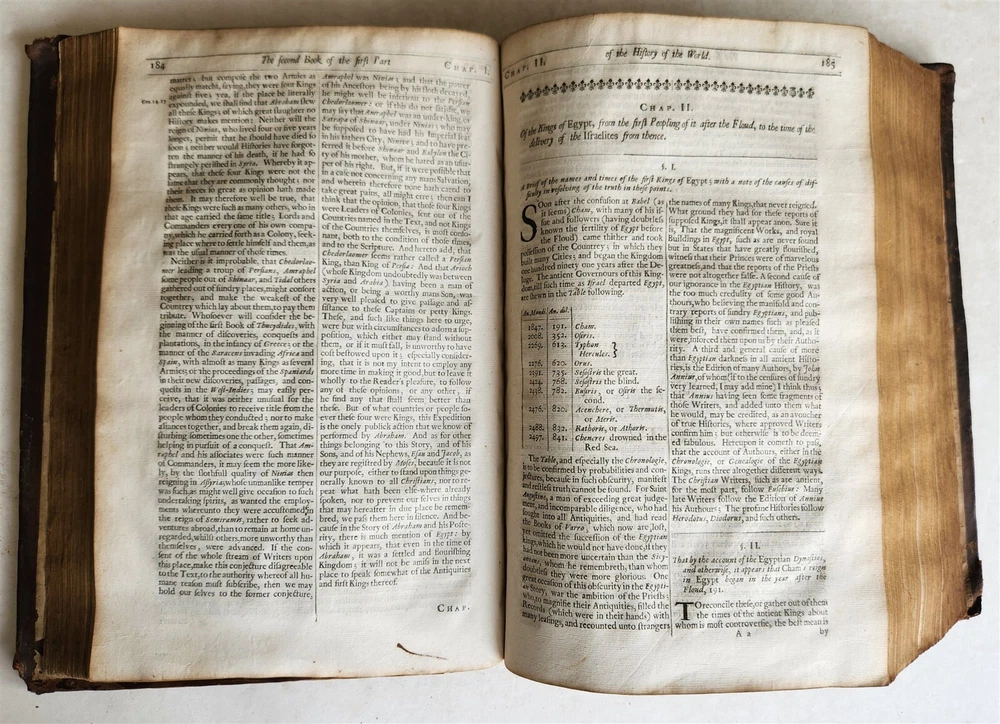 184
The second Book of the first Part
CHAP. I.
matter, but compose the two Armies as
equally matcht, saying, they were four Kings
against five; yea, if the place be literally
Gen. 14. 17
expounded, we shall find that Abraham slew
all these Kings; of which great slaughter no
History makes mention: Neither will the
reign of Ninias, who lived four or five years
longer, permit that he should have died so
soon; neither would Histories have forgot-
ten the manner of his death, if he had so
strangely perished in Syria. Whereby it ap-
pears, that these four Kings were not the
same that they are commonly thought; nor
their forces so great as opinion hath made
them. It may therefore well be true, that
these Kings were such as many others, who in
that age carried the same title; Lords and
Commanders every one of his own compa-
ny, which he carried forth as a Colony, seek-
ing place where to settle himself and them, as
was the usual manner of those times.
Neither is it improbable, that Chedorlao-
mer leading a troup of Persians, Amraphel
some people out of Shinaar, and Tidal others
gathered out of sundry places, might consort
together, and make the weakest of the
Country which lay about them, to pay them
tribute. Whosoever will consider the be-
ginning of the first Book of Thucydides, with
the manner of discoveries, conquests and
plantations, in the infancy of Greece; or the
manner of the Saracens invading Africa and
Spain, with almost as many Kings as several
Armies; or the proceedings of the Spaniards
in their new discoveries, passages, and con-
quests in the West-Indies; may easily per-
ceive, that it was neither unusual for the
leaders of Colonies to receive title from the
people whom they conducted; nor to make
aliances together, and break them again, di-
sturbing sometimes one the other, sometimes
helping in pursuit of a conquest. That Am-
raphel and his associates were such manner
of Commanders, it may seem the more like-
ly, by the slothful quality of Ninias then
reigning in Assyria, whose unmanlike temper
was such, as might well give occasion to such
undertaking spirits, as wanted the employ-
ments whereunto they were accustomed in
the reign of Semiramis, rather to seek ad-
ventures abroad, than to remain at home un-
regarded, whilst others, more unworthy than
themselves, were advanced. If the con-
sent of the whole stream of Writers upon
this place, make this conjecture disagreeable
to the Text, to the authority whereof all hu-
mane reason must subscribe, then we may
hold our selves to the former conjecture,
Amraphel was Ninias; and that the power
of his Ancestors being by his sloth decayed,
he might well be inferiour to the Persian
Chedorlaomer: or if this do not suffice, we
may say that Amraphel was an under-king, or
Satrapa of Shinaar, under Ninias; who may
be supposed to have had his Imperial seat
in his fathers City, Ninive; and to have pre-
ferred it before Shinaar and Babylon the Ci-
ty of his mother, whom he hated as an usur-
per of his right. But, if it were possible that
in a case not concerning any mans Salvation,
and wherein therefore none hath cared to
take great pains, all might erre; then can I
think that the opinion, that these four Kings
were Leaders of Colonies, sent out of the
Countries named in the Text, and not Kings
of the Countries themselves, is most conso-
nant, both to the condition of those times,
and to the Scripture. And hereto add, that
Chedorlaomer seems rather called a Persian
King, than King of Persia: And that Arioch
(whose Kingdom undoubtedly was between
Syria and Arabia) having been a man of
action, or being a worthy mans Son, was
very well pleased to give passage and as-
sistance to these Captains or petty Kings.
These, and such like things here to urge,
were but with circumstances to adorn a sup-
position, which either may stand without
them, or if it must fall, is unworthy to have
cost bestowed upon it; especially consider-
ing, that it is not my intent to employ any
more time in making it good, but to leave it
wholly to the Reader's pleasure, to follow
any of these opinions, or any other, if
he find any that shall seem better than
these. But of what countries or people so-
ever these four were Kings, this Expedition
is the onely publick action that we know of
performed by Abraham. And as for other
things belonging to this Story, and of his
Sons, and of his Nephews, Esau and Jacob, as
they are registred by Moses, because it is not
our purpose, either to stand upon things ge-
nerally known to all Christians, nor to re-
peat what hath been else-where already
spoken, nor to prevent our selves in things
that may hereafter in due place be remem-
bred, we pass them here in silence. And be-
cause in the Story of Abraham and his Poste-
rity, there is much mention of Egypt: by
which it appears, that even in the time of
Abraham, it was a setled and flourishing
Kingdom; it will not be amiss in the next
place to speak somewhat of the Antiquities
and first Kings thereof.
CHAP.
CHAP. II.
of the History of the World.
185
CHAP. II.
Of the Kings of Egypt, from the first Peopling of it after the Floud, to the time of the
delivery of the Israelites from thence.
§. I.
A Brief of the names and times of the first Kings of Egypt; with a note of the causes of dif-
ficulty in resolving of the truth in these points.
SOon after the confusion at Babel (as
it seems) Cham, with many of his is-
sue and followers (having doubtless
known the fertility of Egypt before
the Floud) came thither and took
possession of the Countrey; in which they
built many Cities; and began the Kingdom
one hundred ninety one years after the De-
luge. The antient Governours of this King-
dom, till such time as Israel departed Egypt,
are shewn in the Table following.
An. Mundi. An. dil.
1847. 191. Cham.
2008. 352. Osiris.
2269. 613. Typhon }
Hercules. }
2276. 620. Orus.
2391. 735. Sesostris the great.
2424. 768. Sesostris the blind.
2438. 782. Busiris, or Osiris the se-
cond.
2476. 820. Acenchere, or Thermutis,
or Meris.
2488. 832. Rathoris, or Athoris.
2497. 841. Chencres drowned in the
Red Sea.
The Table, and especially the Chronologie,
is to be confirmed by probabilities and con-
jectures, because in such obscurity, manifest
and resistless truth cannot be found. For Saint
Augustine, a man of exceeding great judge-
ment, and incomparable diligence, who had
sought into all Antiquities, and had read
the Books of Varro, which now are lost,
yet omitted the succession of the Egyptian
Kings, which he would not have done, if they
had not been more uncertain than the Sicy-
onians, whom he remembreth, than whom
doubtless they were more glorious. One
great occasion of this obscurity in the Egypti-
an Story, was the ambition of the Priests;
who, to magnifie their Antiquities, filled the
Records (which were in their hands) with
many leasings, and recounted unto strangers
the names of many Kings, that never reigned.
What ground they had for these reports of
supposed Kings, it shall appear anon. Sure it
is, That the magnificent Works, and royal
Buildings in Egypt, such as are never found
but in States that have greatly flourished,
witness that their Princes were of marvelous
greatness, and that the reports of the Priests
were not altogether false. A second cause of
our ignorance in the Egyptian History, was
the too much credulity of some good Au-
thours, who believing the manifold and con-
trary reports of sundry Egyptians, and pub-
lishing in their own names such as pleased
them best, have confirmed them, and, as it
were, inforced them upon us by their Autho-
rity. A third and general cause of more
than Egyptian darkness in all antient Histo-
ries, is the Edition of many Authors, by John
Annius, of whom (if to the censures of sundry
very learned, I may add mine) I think thus;
that Annius having seen some fragments of
those Writers, and added unto them what
he would, may be credited, as an avoucher
of true Histories, where approved Writers
confirm him; but otherwise is to be deem-
ed fabulous. Hereupon it cometh to pass,
that the account of Authours, either in the
Chronologie, or Genealogie of the Egyptian
Kings, runs three altogether different ways.
The Christian Writers, such as are antient,
for the most part, follow Eusebius: Many
late Writers follow the Edition of Annius
his Authours: The profane Histories follow
Herodotus, Diodorus, and such others.
§. II.
That by the account of the Egyptian Dynasties,
and otherwise, it appears that Cham's reign
in Egypt began in the year after the
Floud, 191.
TO reconcile these, or gather out of them
the times of the antient Kings about
whom is most controversie, the best mean is
A a
by